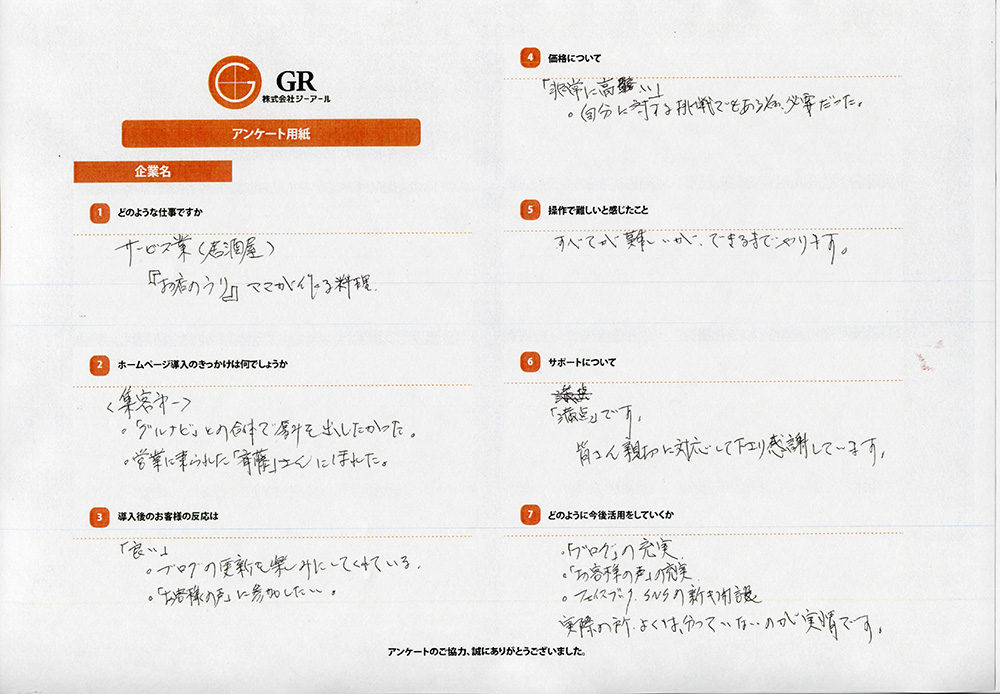 GR
株式会社ジーアール
アンケート用紙
企業名
1 どのような仕事ですか
サービス業(居酒屋)
『お店のうり』ママが作る料理.
2 ホームページ導入のきっかけは何でしょうか
<集客カー>
・「グルナビ」との合体で厚みを出したかった。
・営業に来られた「斉藤」さんにほれた。
3 導入後のお客様の反応は
「良い」
・ブログの更新を楽しみにしてくれている.
・「お客様の声」に参加したい。
4 価格について
「非常に高い」
・自分に対する挑戦でもある為、必要だった。
5 操作で難しいと感じたこと
すべてが難しいが、できるまでやります。
6 サポートについて
「満点」です。
皆さん親切に対応して下さり感謝しています。
7 どのように今後活用をしていくか
・「ブログ」の充実
・「お客様の声」の充実
・フェイスブック、SNSの新規開設
実際の所、よくは、分っていないのが実情です。
アンケートのご協力、誠にありがとうございました。